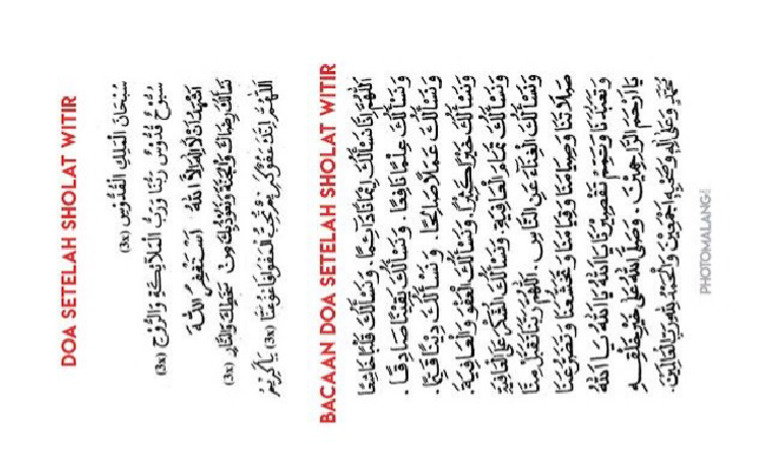 DOA SETELAH SHOLAT WITIR
سُبْحَانَ الْمَلِكِ الْقُدُّوْسِ (3x)
سُبُّوْحٌ قُدُّوْسٌ رَبُّنَا وَرَبُّ الْمَلَائِكَةِ وَالرُّوْحِ (3x)
اَشْهَدُ اَنْ لَا اِلٰهَ اِلَّا اللهُ اَسْتَغْفِرُ اللهَ
نَسْأَلُكَ رِضَاكَ وَالْجَنَّةَ وَنَعُوْذُبِكَ مِنْ سَخَطِكَ وَالنَّارِ (3x)
اَللّٰهُمَّ اِنَّكَ عَفُوٌّ كَرِيْمٌ تُحِبُّ الْعَفْوَ فَاعْفُ عَنَّا (3x) يَاكَرِيْمُ
BACAAN DOA SETELAH SHOLAT WITIR
اَللّٰهُمَّ اِنَّا نَسْأَلُكَ اِيْمَانًا دَائِمًا. وَنَسْأَلُكَ قَلْبًا خَاشِعًا
وَنَسْأَلُكَ عِلْمًا نَافِعًا. وَنَسْأَلُكَ يَقِيْنًا صَادِقًا.
وَنَسْأَلُكَ عَمَلًا صَالِحًا. وَنَسْأَلُكَ دِيْنًا قَيِّمًا.
وَنَسْأَلُكَ خَيْرًا كَثِيْرًا. وَنَسْأَلُكَ الْعَفْوَ وَالْعَافِيَةَ.
وَنَسْأَلُكَ تَمَامَ الْعَافِيَةِ. وَنَسْأَلُكَ الشُّكْرَ عَلَى الْعَافِيَةِ
وَنَسْأَلُكَ الْغِنَاءَ عَنِ النَّاسِ. اَللّٰهُمَّ رَبَّنَا تَقَبَّلْ مِنَّا
صَلَاتَنَا وَصِيَامَنَا وَقِيَامَنَا وَتَخَشُّعَنَا وَتَضَرُّعَنَا
وَتَعَبُّدَنَا وَتَمِّمْ تَقْصِيْرَنَا يَا اَللهُ يَا اَللهُ يَا اَللهُ
يَا اَرْحَمَ الرَّاحِمِيْنَ. وَصَلَّى اللهُ عَلَى خَيْرِ خَلْقِهِ
مُحَمَّدٍ وَعَلَى اٰلِهِ وَصَحْبِهِ اَجْمَعِيْنَ وَالْحَمْدُ لِلّٰهِ رَبِّ الْعَالَمِيْنَ.
PHOTOMALANG